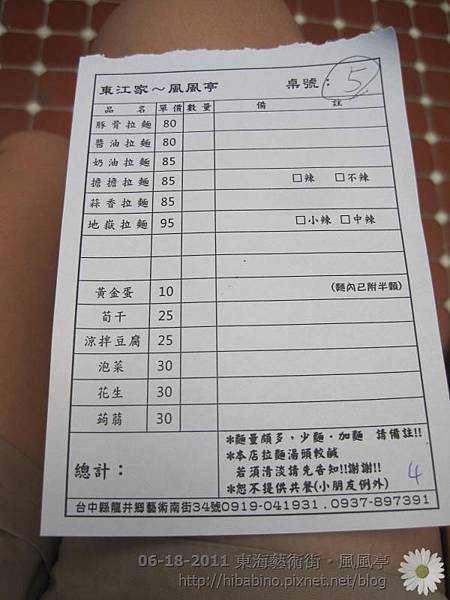 東江家～風風亭 桌號：5
品名 單價 數量 備註
豚骨拉麵 80
醬油拉麵 80
奶油拉麵 85
擔擔拉麵 85 □辣 □不辣
蒜香拉麵 85
地嶽拉麵 95 □小辣 □中辣
黃金蛋 10 (麵內已附半顆)
荀干 25
涼拌豆腐 25
泡菜 30
花生 30
蒟蒻 30
總計：
*麵量頗多，少麵．加麵 請備註!!
*本店拉麵湯頭較鹹
若須清淡請先告知!!謝謝!!
*恕不提供共餐(小朋友例外)
4
台中縣龍井鄉藝術南街34號0919-041931．0937-897391
06-18-2011 東海藝術街．風風亭
http://hibabino.pixnet.net/blog